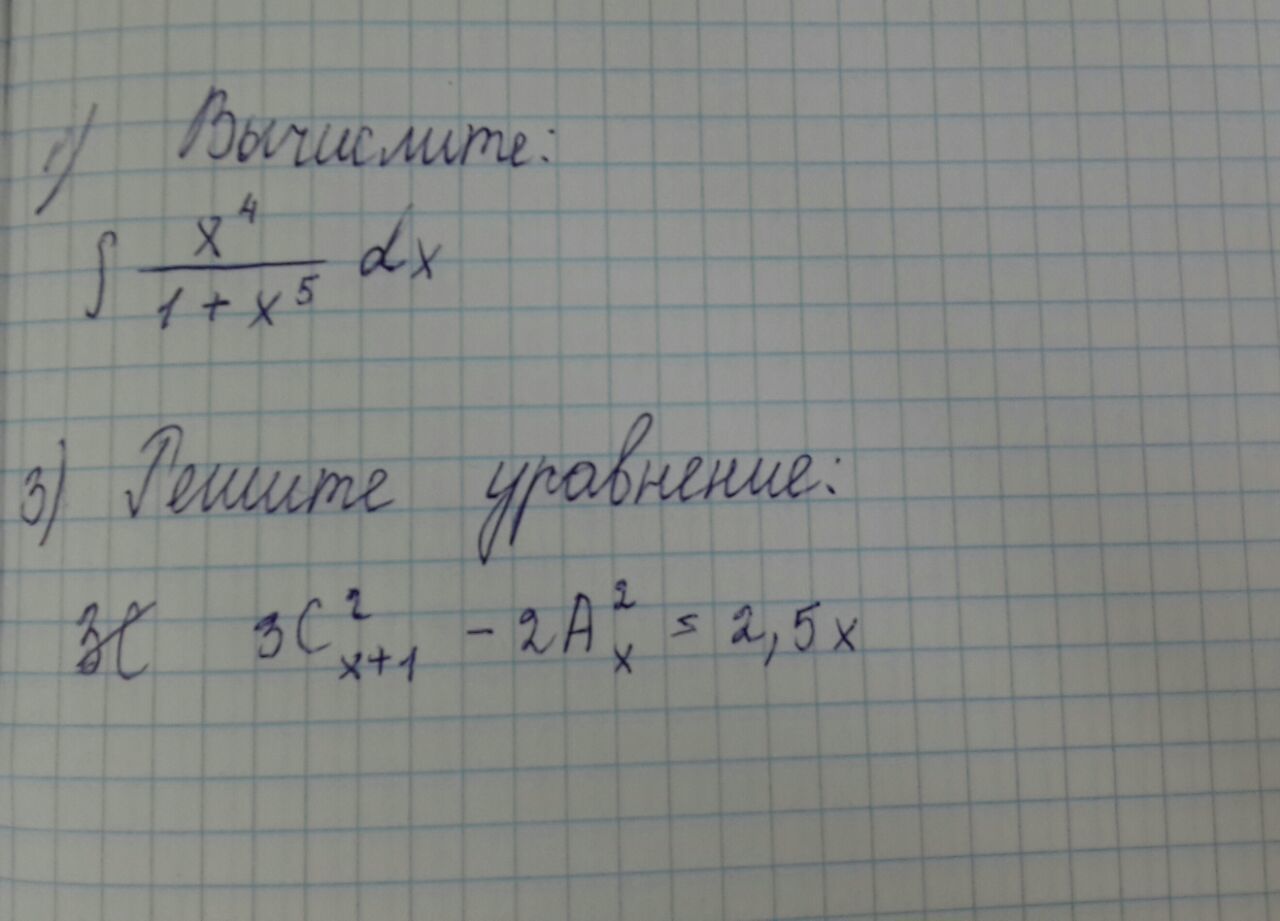 1) Вычислите:
∫ x⁴/(1 + x⁵) dx
3) Решите уравнение:
3C²ₓ₊₁ - 2A²ₓ = 2,5x